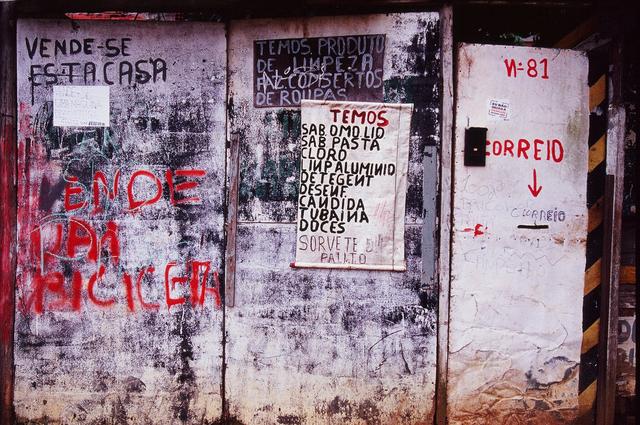 VENDE-SE
ESTA CASA
ENDE
BICICETA
TEMOS PRODUTO
DE LIMPEZA
CONSERTOS
DE ROUPAS
TEMOS
SAB OMO LIO
SAB PASTA
CLORO
LIMP ALUMINIO
DETEGENT
DESENF
CANDIDA
TUBAINA
DOCES
SORVETE DI
PALITO
Nº 81
CORREIO
CORREIO